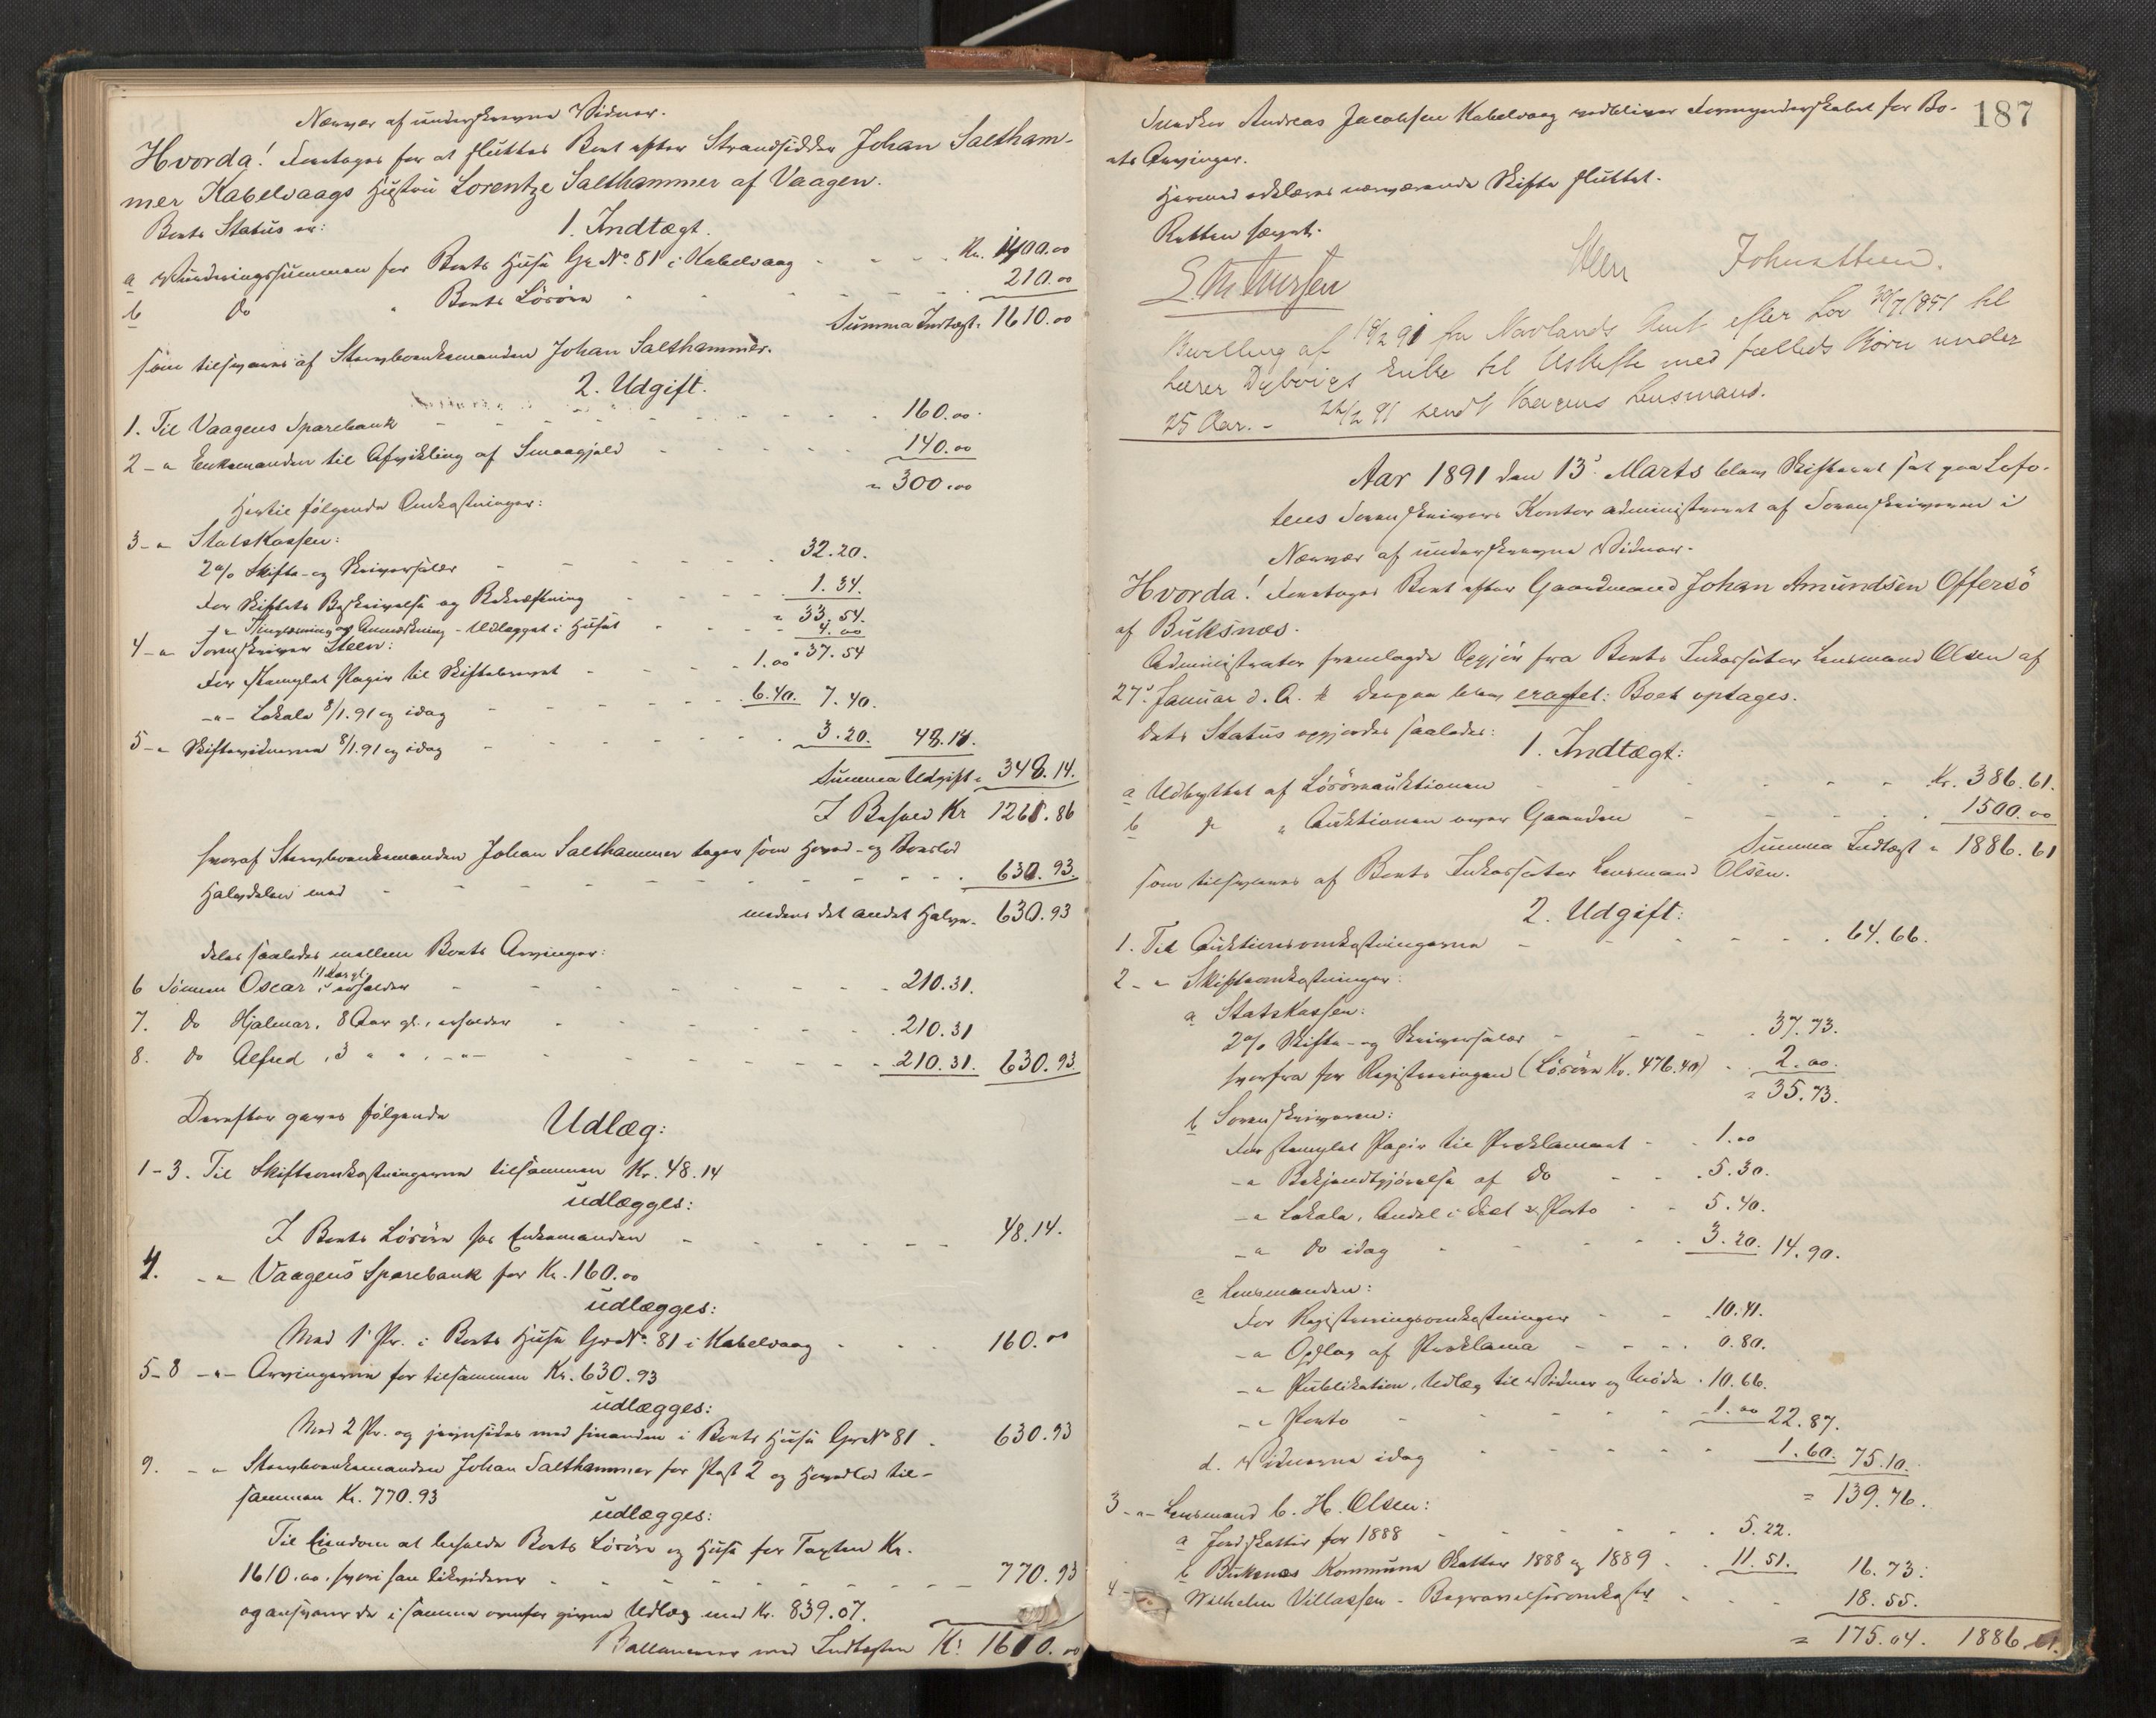 Nærvær af underskrevne Vidner.
Hvorda! Foretoges for at sluttes Boet efter Strandsidder Johan Saltham-
mer Kabelvaags Hustru Lorentze Salthammer af Vaagen.
Boets Status er: 1. Indtægt.
a Vurderingssummen for Boets Huse Gr No. 81 i Kabelvaag - - - Kr. 1400.00
b Do " Boets Lösöre - - - 210.00
Summa Indtægt = 1610.00
som tilsvares af Stervboenkemanden Johan Salthammer.
2. Udgift.
1. Til Vaagens Sparebank - - - 160.00
2 - " Enkemanden til Afvikling af Smaagjæld - - - 140.00
= 300.00
Hertil følgende Omkostninger:
3 - " Statskassen:
2% Skifte- og Skriversalær - - - 32.20.
For Skiftets Beskrivelse og Bekræftning - - - 1.34.
= 33.54.
" Tinglæsning og Anmerkning - Udlægget i Huset - - - 4.00
4 - " Sorenskriver Steen: 37.54
For stemplet Papir til Skiftebrevet - - - 1.00
- " - Lokale 8/1.91 og idag - - - 6.40. 7.40.
5 - " Skiftevidnerne 8/1.91 og idag - - - 3.20. 48.14.
Summa Udgift = 348.14.
I Behold Kr 1261.86
hvoraf Stervboenkemanden Johan Salthammer tager som Hoved- og Boeslod
Halvdelen med - - - 630.93.
medens det andet Halve - 630.93
deles saaledes mellem Boets Arvinger:
6 Sønnen Oscar, 11 Aar gl. erholder - - - 210.31.
7. Do Hjalmar, 8 Aar gl., erholder - - - 210.31
8. Do Alfred, 3 " " , - " - - - - 210.31. 630.93
Derefter gaves følgende Udlæg:
1-3. Til Skifteomkostningerne tilsammen Kr. 48.14
udlægges:
I Boets Lösöre hos Enkemanden - - - 48.14.
4. - " Vaagens Sparebank for Kr. 160.00
udlægges:
Med 1' Pr. i Boets Huse Gr No. 81 i Kabelvaag - - - 160.00
5-8 - " - Arvingerne for tilsammen Kr. 630.93
udlægges:
Med 2 Pr. og jevnsides med hinanden i Boets Huse Gr No 81 - 630.93
9. - " Stervboenkemanden Johan Salthammer for Post 2 og Hovedlod til-
sammen Kr. 770.93
udlægges:
Til Eiendom at beholde Boets Lösöre og Huse for Taxten Kr.
1610.00, hvori han likviderer - - - 770.93
og ansvarer de i samme ovenfor givne Udlæg med Kr. 839.07.
Ballancerer med Indtægten Kr. 1610.00
187
Snedker Andreas Jacobsen Kabelvaag vedbliver Formynderskabet for Bo-
ets Arvinger.
Hermed erklæres nærværende Skifte sluttet.
Retten hævet.
Steen Johnathun.
Bevilling af 18/2 91 fra Nordlands Amt efter Lov 30/7 1851 til
Lærer Dybvigs Enke til Uskifte med fælleds Børn under
25 Aar. - 24/2 91 sendt Vaagens Lensmand.
Aar 1891 den 13' Marts blev Skifteret sat paa Lofo-
tens Sorenskrivers Kontor administreret af Sorenskriveren i
Nærvær af underskrevne Vidner.
Hvorda! Foretoges Boet efter Gaardmand Johan Amundsen Offersö
af Buksnæs.
Administrator fremlagde Opgjør fra Boets Inkassator Lensmand Olsen af
27' Januar d. A. Derpaa blev eragtet: Boet optages.
Dets Status opgjordes saaledes:
1. Indtægt:
a Udbyttet af Lösöreauktionen - - - Kr. 386.61.
b Do " Auktionen over Gaarden - - - 1500.00
Summa Indtægt = 1886.61
som tilsvares af Boets Inkassator Lensmand Olsen.
2. Udgift:
1. Til Auktionsomkostningerne - - - 64.66.
2 - " Skifteomkostninger:
a Statskassen:
2% Skifte- og Skriversalær - - - 37.73.
herfra for Registreringen (Lösöre Kr. 476.40) - 2.00.
= 35.73.
b Sorenskriveren:
For stemplet Papir til Proklamaet - - 1.00
- " Bekjendtgjørelse af Do - - 5.30.
- " Lokale, Andel i Diæt & Porto - - 5.40.
- " Do idag - - - 3.20. 14.90.
c Lensmanden:
For Registreringsomkostninger - - 10.41.
- " Opslag af Proklama - - - 0.80.
- " Publikation, Udlæg til Vidner og Møde - 10.66.
- " Porto - - - 1.00 22.87.
d. Vidnerne idag - - - 1.60. 75.10.
= 139.76.
3 - " - Lensmand C. H. Olsen:
a Jordskatter for 1888 - - - 5.22.
b Buksnæs Kommune Skatter 1888 og 1889 - - 11.51. 16.73.
4 - Wilhelm Villassen - Begravelsesomkostn. - - - 18.55.
= 175.04. 1886.61.